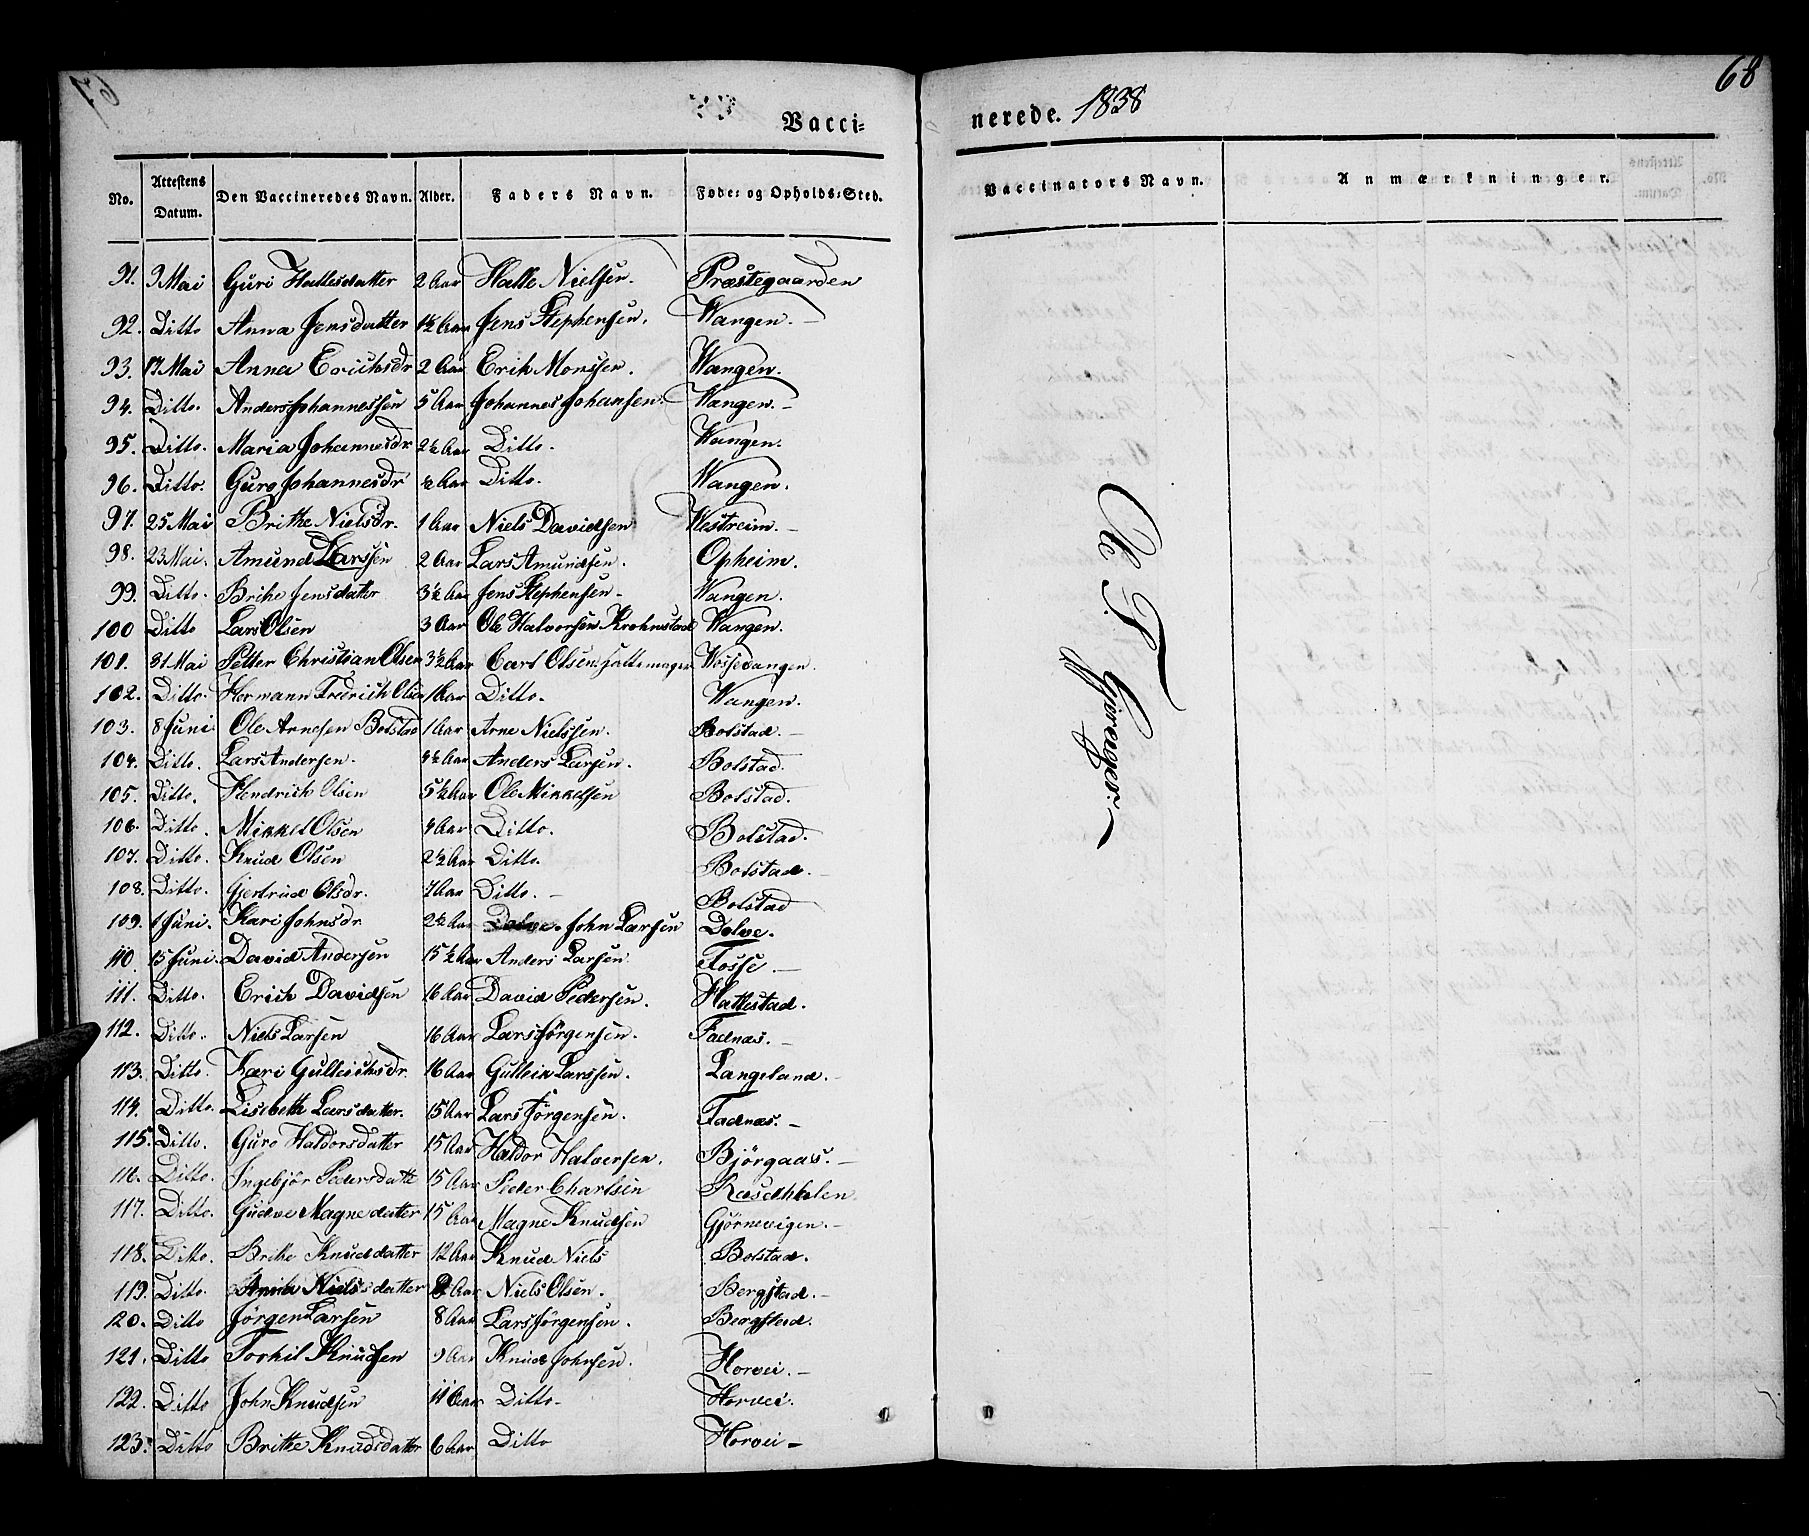 68
Vacci-
nerede. 1838
No. Attestens Datum. Den Vaccineredes Navn. Alder. Faders Navn. Føde- og Opholds-Sted. Vaccinators Navn. Anmærkninger.
91. 9 Mai Guri Hallesdatter 2 Aar Halle Nielsen. Præstegaarden
92. Ditto Anna Jensdatter 1½ Aar Jens Stephensen. Wangen. –
93. 17 Mai Anna Erichsdr 2 Aar Erik Monssen. Wangen.
94. Ditto. Anders Johannessen 5 Aar Johannes Johansen. Wangen. –
95. Ditto. Maria Johannesdr 2½ Aar Ditto. Wangen.
96. Ditto. Guro Johannesdr ½ Aar Ditto. Wangen.
97. 25 Mai Brithe Nielsdr. 1 Aar Niels Davidsen Westreim. –
98. 23 Mai. Amund Larssen 2 Aar Lars Amundsen. Opheim.
99. Ditto. Brithe Jensdatter 3½ Aar Jens Stephensen – Wangen.
100 Ditto Lars Olsen 3 Aar Ole Halvorsen Krohnstad Wangen.
101. 31 Mai Petter Christian Olsen 3½ Aar Carl Olsen Hattemager Vossevangen.
102. Ditto. Hermann Fredrich Olsen 1 Aar Ditto. Wangen.
103. 8 Juni Ole Arnesen Bolstad 1 Aar Arne Nielssen. Bolstad. –
104. Ditto. Lars Andersen. 4½ Aar Anders Larsen. Bolstad.
105. Ditto. Hendrich Olsen 5½ Aar Ole Mikkelsen Bolstad.
106. Ditto. Mikkel Olsen 4 Aar Ditto. Bolstad.
107. Ditto. Knud Olsen 2½ Aar Ditto. Bolstad. –
108. Ditto. Gjertrud Olsdr. 7 Aar Ditto. – Bolstad
109. 1 Juni. Kari Johnsdr. 2½ Aar John Larsen Dolve.
110. 15 Juni. David Andersen 15½ Aar Anders Larsen Fosse. –
111. Ditto. Erich Davidsen 16 Aar David Pedersen. Hattestad.
112. Ditto. Niels Larsen 16 Aar Lars Jörgensen. Fadnæs. –
113. Ditto. Kari Gulleichsdr. 16 Aar Gulleik Larssen. Langeland. –
114. Ditto. Lisebette Larsdatter. 15 Aar Lars Jörgensen. Fadnæs. –
115. Ditto. Guro Haldorsdatter 15 Aar Haldor Halversen. Björgaas. –
116. Ditto. Ingebjör Pedersdatt 15 Aar Peder Charlsen
117. Ditto. Gudve Magnedatter 15 Aar Magne Knudsen Gjörnevigen. –
118. Ditto. Brithe Knudsdatter 12 Aar Knud Niels Bolstad.
119. Ditto. Anna Nielsdatter Aar Niels Olsen. Bergstad. –
120. Ditto Jörgen Larsen 8 Aar Lars Jörgensen. Bergstad.
121. Ditto Torkil Knudsen 9 Aar Knud Johnsen. Horvei. –
122. Ditto John Knudsen 11 Aar Ditto – Horvei.
123. Ditto Brithe Knudsdatter 6 Aar Ditto Horvei –
Gjersager. –